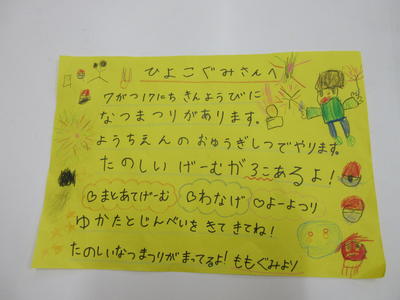 ひよこぐみさんへ
7がつ17にち きんようびに
なつまつりがあります。
ようちえんの おゆうぎしつでやります。
たのしい げーむが 3こあるよ！
まとあてげーむ わなげ ♡よーよつり
ゆかたとじんべいを きて きてね！
たのしいなつまつりがまってるよ！ ももぐみより